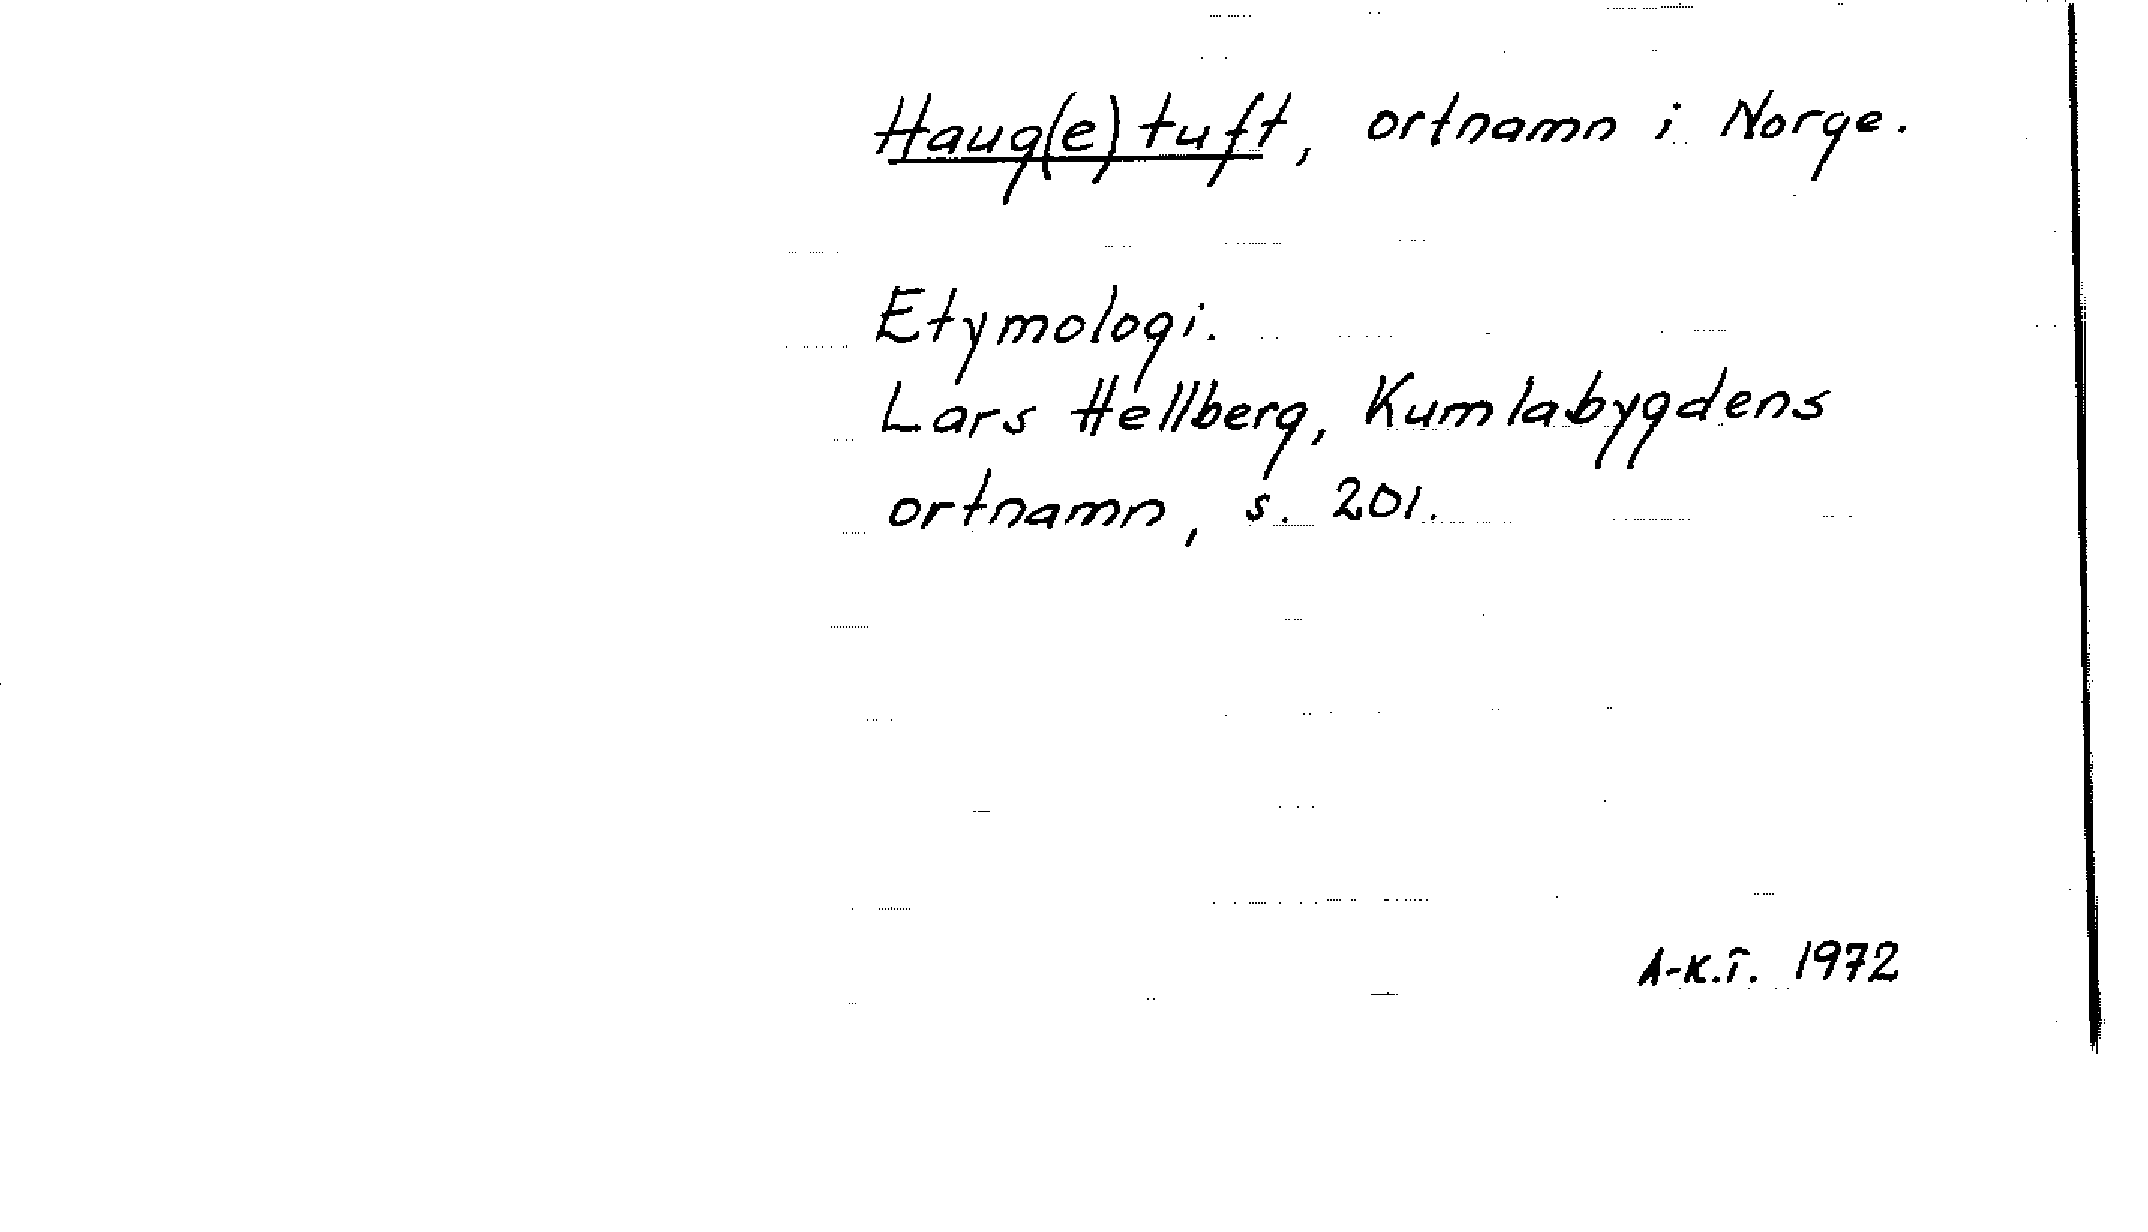 Haug(e)tuft, ortnamn i Norge.
Etymologi.
Lars Hellberg, Kumlabygdens
ortnamn, s. 201.
A-K.T. 1972